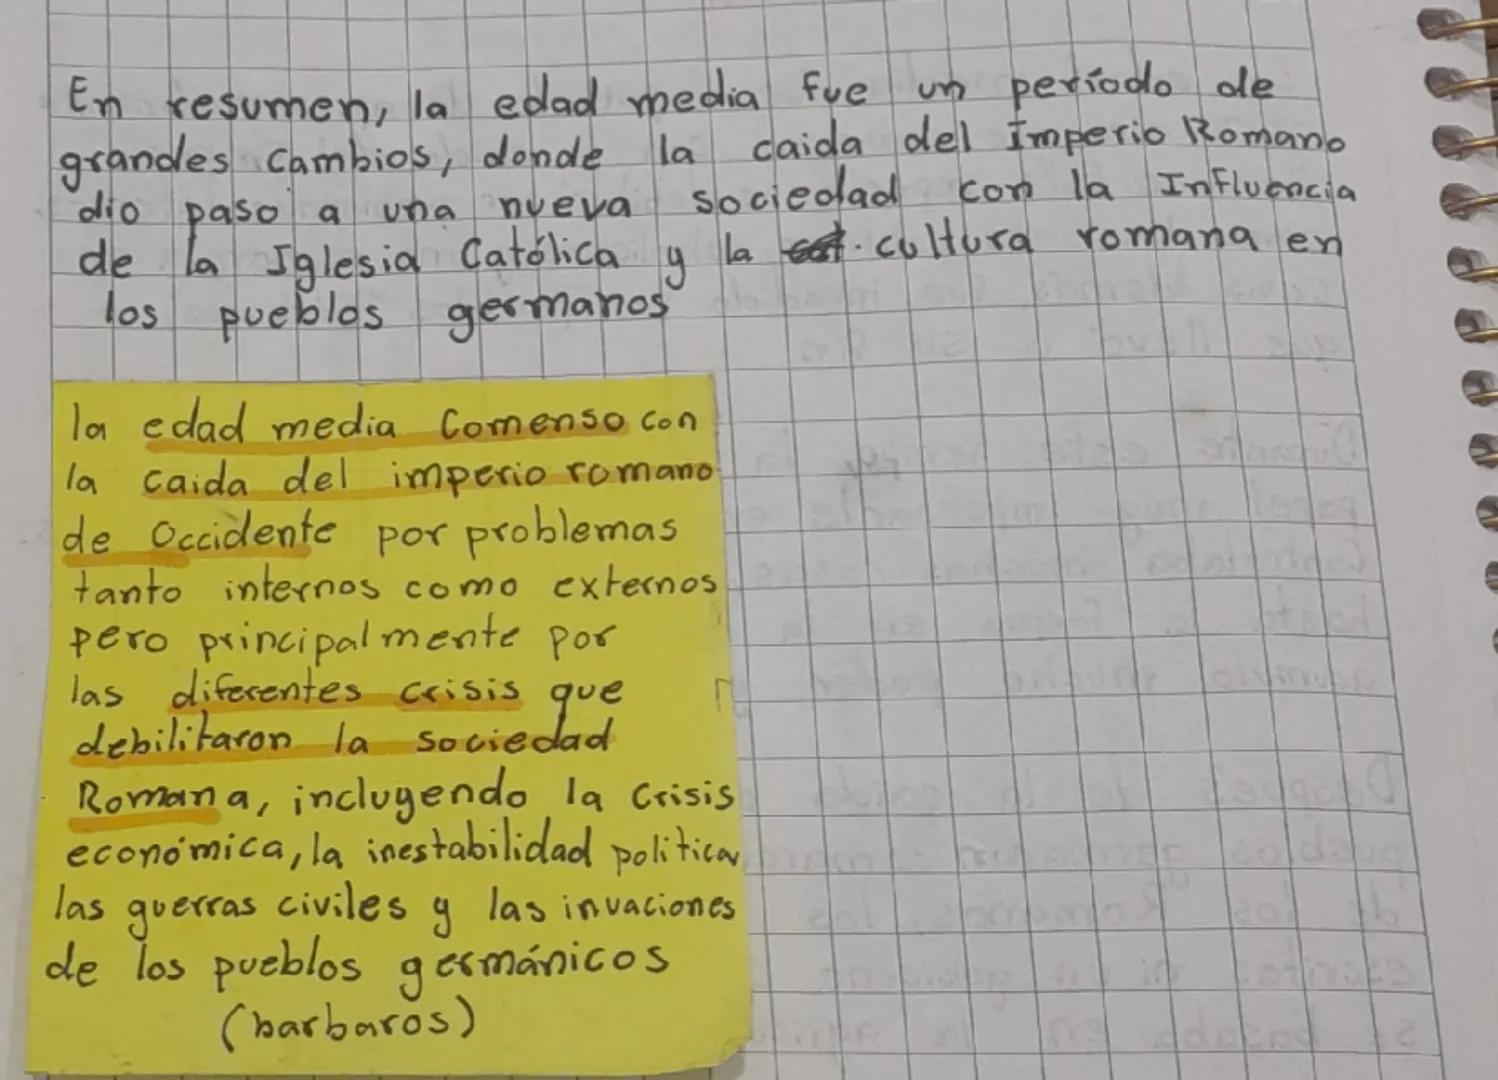 En resumen, la edad media fue un período de
grandes cambios, donde la caida del Imperio Romano
dio paso a una nueva sociedad con la Influencia
de la Iglesia Católica y la cultura romana en
los pueblos germanos
la edad media Comenso con
la caida del imperio romano
de Occidente por problemas
tanto internos como externos
pero principalmente por
las diferentes crisis que
debilitaron la sociedad
Romana, incluyendo la Crisis
económica, la inestabilidad politica,
las guerras civiles y las invaciones
de los pueblos germánicos
(barbaros)